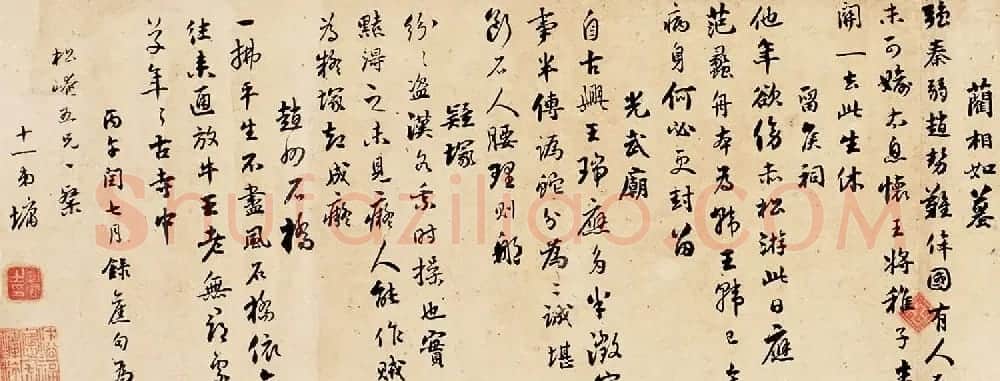 藺相如墓
強秦弱趙勢難侔國有人
未可媮太息懷王將稚子
關一去此生休
留侯祠
他年欲傍赤松游此日應
范蠡舟本為韓王韓已
病身何必更封留
光武廟
自古興王瑞應多半激
事半傳訛蛇分為二誠堪
石人腰理則那
疑塚
紛紛盜漢各乘時操也實
黠得之未見癡人能作賊
為疑塚却成癡
趙州石橋
一拂平生不盡風石橋依
往來通放牛王老無處
年年古寺中
丙午閏七月錄舊句為
松崦五兄一粲
十一弟墉
Shufaziliao.COM